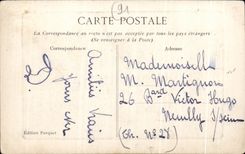 91
CARTE POSTALE
La Correspondance au recto n'est pas acceptée par tous les pays étrangers
(Se renseigner à la Poste)
Correspondance
Adresse
Amitiés
Mademoiselle
M. Martignon
26 Bard Victor Hugo
Neuilly s/seine
(Ch. N° 28)
Edition Parquet